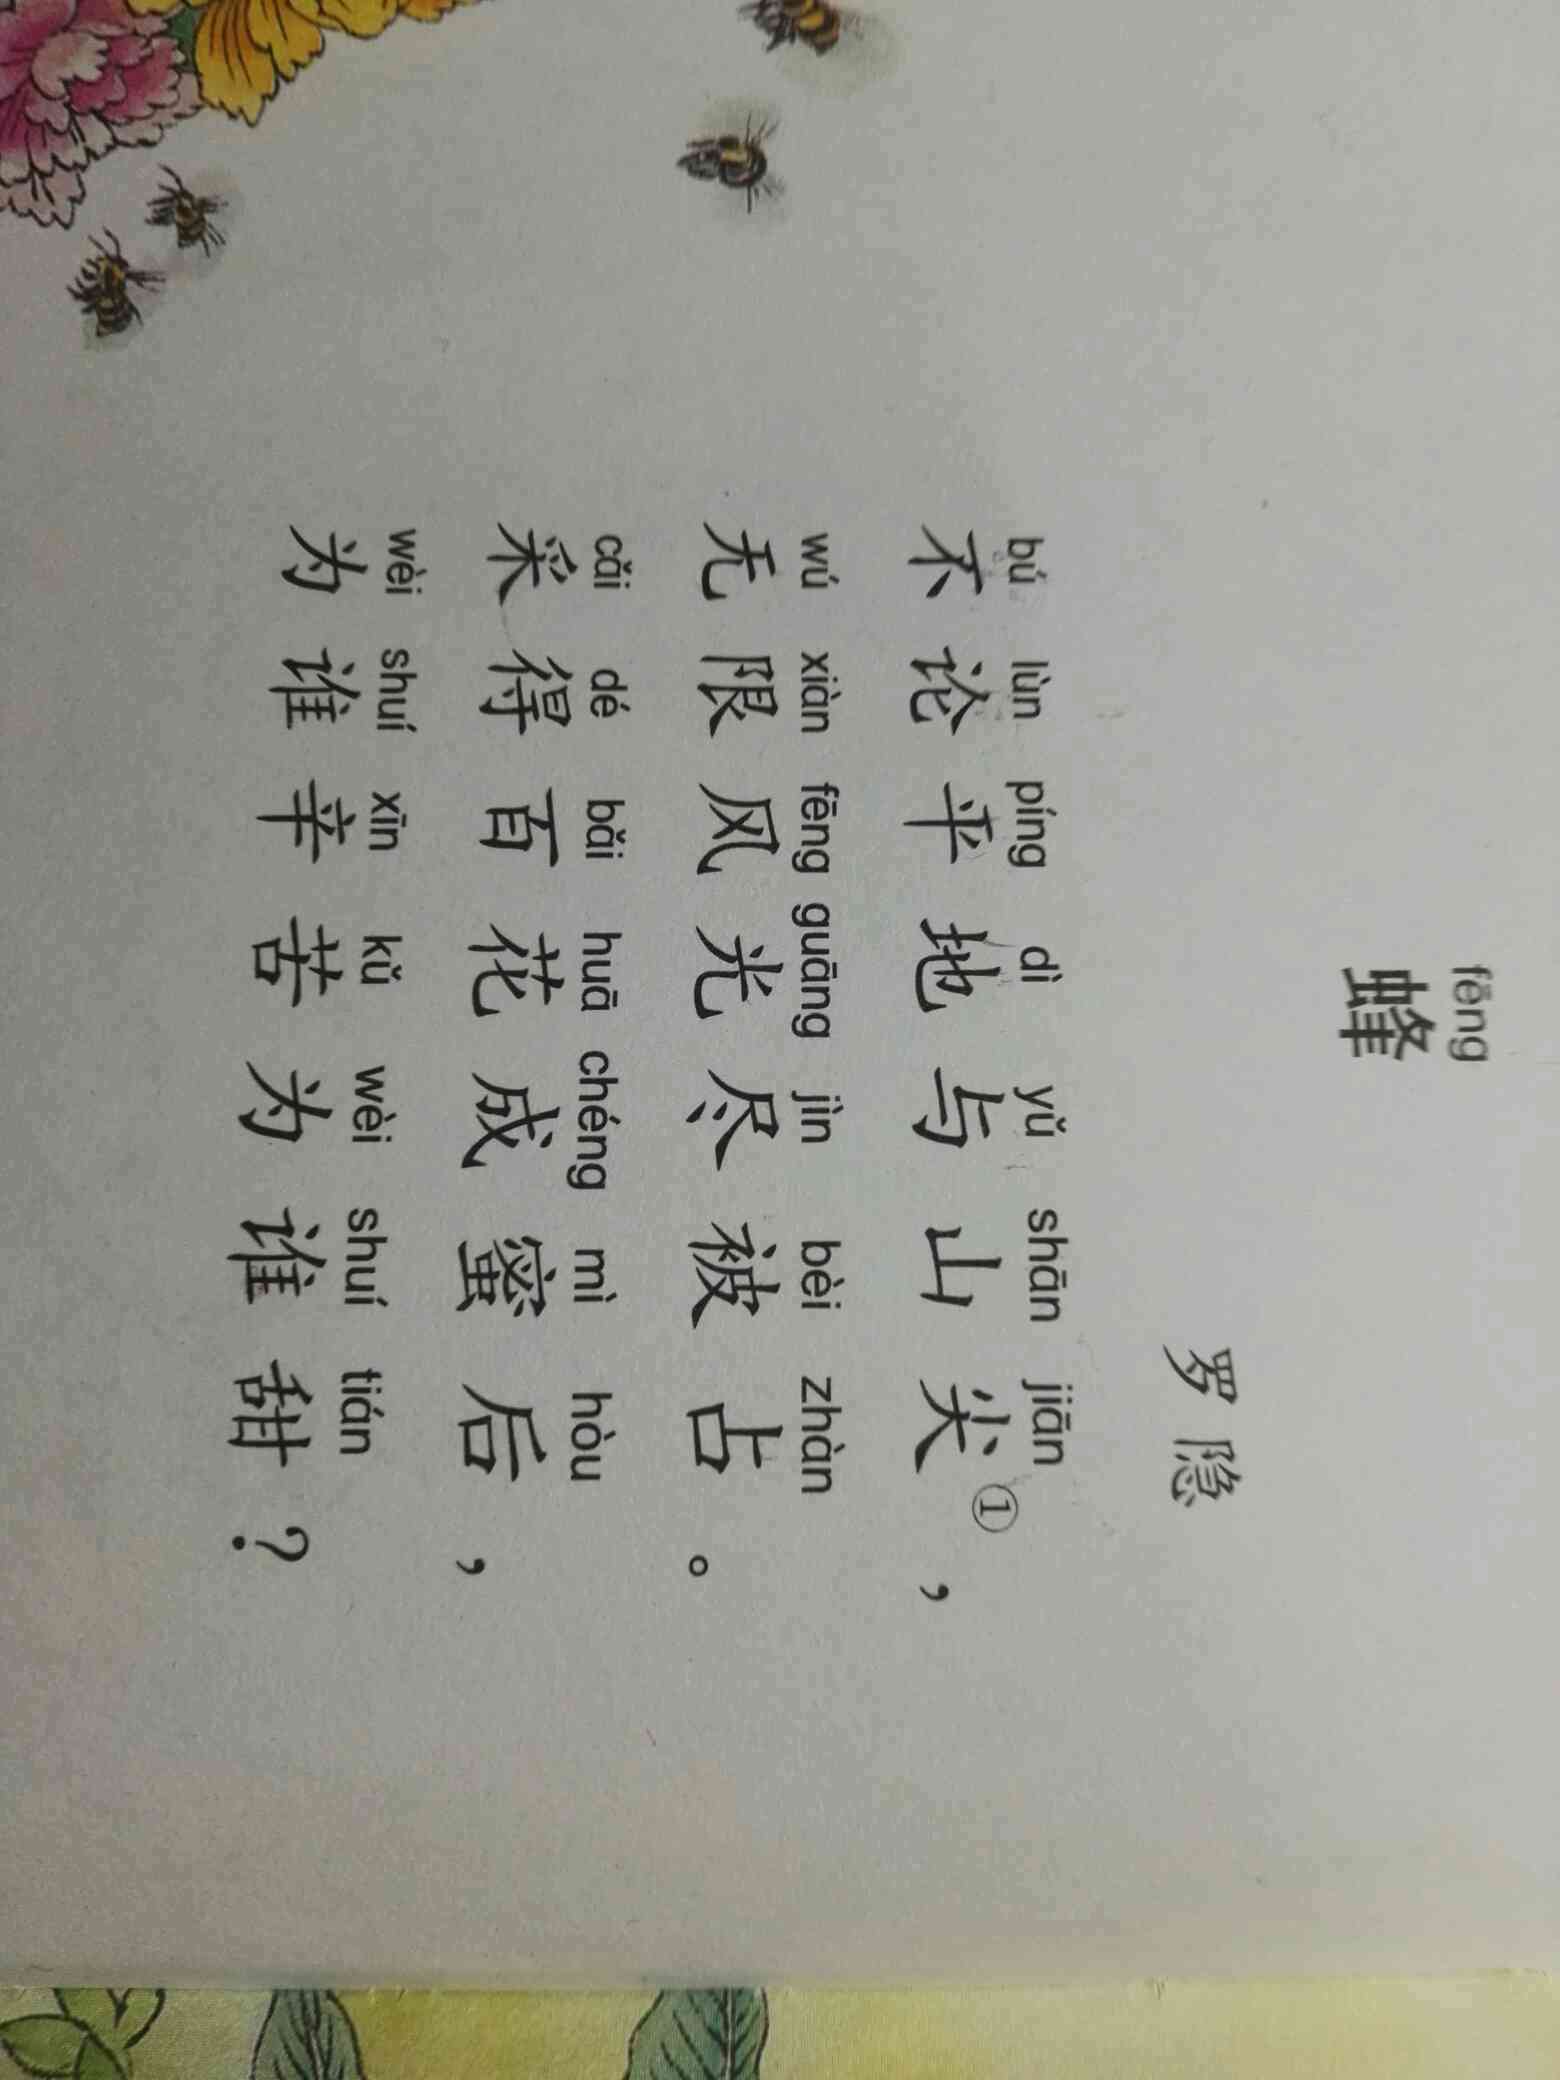 fēng
蜂
罗隐
bú lùn píng dì yǔ shān jiān
不论平地与山尖①，
wú xiàn fēng guāng jìn bèi zhàn
无限风光尽被占。
cǎi dé bǎi huā chéng mì hòu
采得百花成蜜后，
wèi shuí xīn kǔ wèi shuí tián
为谁辛苦为谁甜？